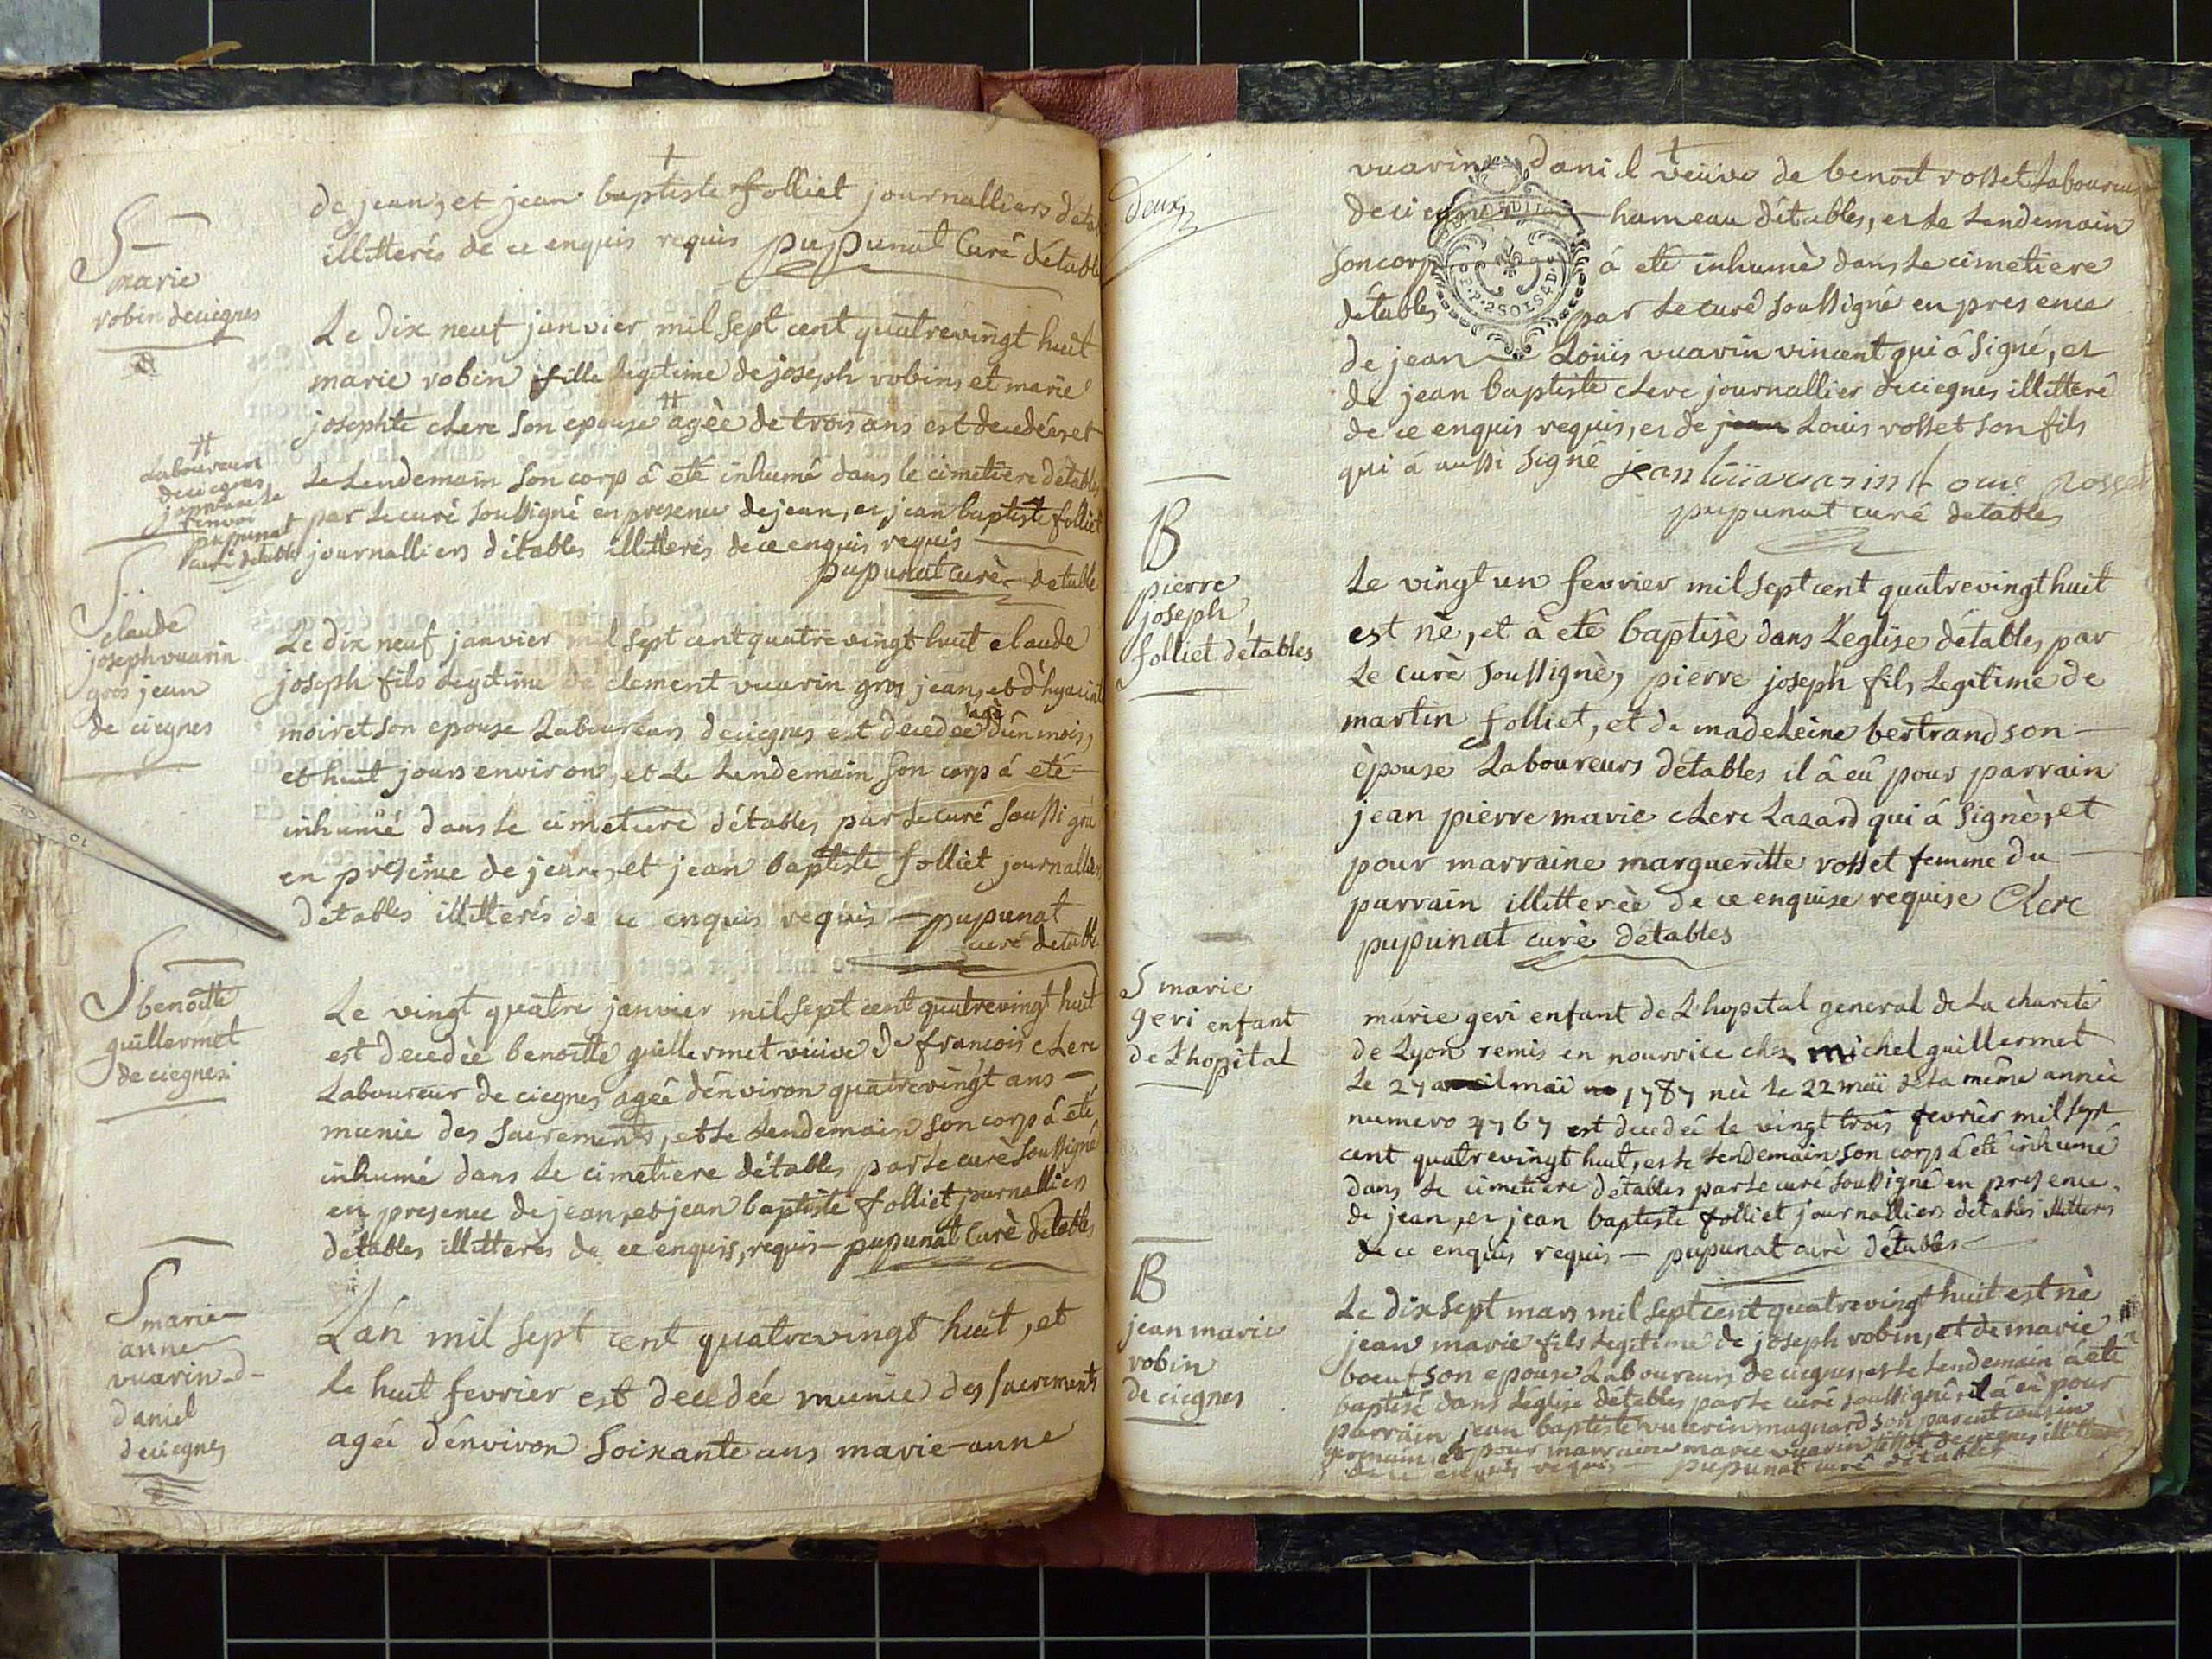 de jean, et jean baptiste folliet journalliers détab
illitterés de ce enquis requis pupunat Curé détable
S
marie
robin deciegnes
Le dix neuf janvier mil sept cent quatrevingt huit
marie robin fille legitime de joseph robin, et marie
josephte clerc son epouse # agèe de trois ans est decedée, et
#
Laboureurs
deciegnes
japprouve le
renvoi
pupunat
curé détables
Le Lendemain son corp á eté inhumé dans le cimetiere détables
par le curé soussigné en presence de jean, et jean baptiste folliet
journalliers détables illitterés de ce enquis requis
pupunat curè détable
S
claude
joseph vuarin
gros jean
de ciegnes
Le dix neuf janvier mil sept cent quatrevingt huit claude
joseph fils Legitime de clement vuarin gros jean, et d'hyacint
moiret son epouse Laboureurs deciegnes est decedée agé d'un mois,
et huit jours environ, et Le Lendemain son corp á eté
inhumé dans le cimetiere détables par le curé soussigné
en presence de jean, et jean baptiste folliet journalliers
détables illitterés de ce enquis requis — pupunat
curé detable
S
benoitte
guillermet
de ciegnes
Le vingt quatre janvier mil sept cent quatrevingt huit
est decedèe benoitte guillermet veuve de françois clerc
Laboureur de ciegnes agèe d'environ quatrevingt ans —
munie des sacrements, et le Lendemain son corp á eté
inhumé dans le cimetiere détables par le curè soussigné
en presence de jean, et jean baptiste folliet journalliers
détables illitterès de ce enquis, requis — pupunat Curè détables
S
marie
anne
vuarin-d-
daniel
deciegnes
L'an mil sept cent quatrevingt huit, et
le huit fevrier est decedée munie des sacrements
agée d'environ soixante ans marie-anne
deux
vuarin danil veuve de benoit rosset Laboureur
deciegnes hameau détables, et le Lendemain
son corp á eté inhumè dans le cimetiere
détables par le curé soussigné en presence
de jean Loüis vuarin vincent qui á signé, et
de jean baptiste clerc journallier deciegnes illitteré
de ce enquis requis, et de jean Louis rosset son fils
qui á aussi signé jean lüi vuarin Loui Rosset
pupunat curé detables
2 SOLS 4 D
B
pierre
joseph
folliet détables
Le vingt un fevrier mil sept cent quatrevingt huit
est nè, et à eté baptisè dans L'eglise détables, par
Le curè soussignè, pierre joseph fils Legitime de
martin folliet, et de madeleine bertrand son —
èpouse Laboureurs détables il á eû pour parrain
jean pierre marie clerc Lazard qui á signè, et
pour marraine margueritte rosset femme du —
parrain illitterèe de ce enquise requise Clerc
pupunat curè détables
S marie
geri enfant
de L'hopital
marie geri enfant de L'hopital general de La charité
de Lyon remis en nourrice chez michel guillermet
Le 27 avril maï 1787 neè Le 22 maï de la même annèe
numero 4767 est decedèe le vingt trois fevrier mil sept
cent quatrevingt huit, et le Lendemain son corp á eté inhumé
dans le cimetiere détables par le curé soussigné en presence
de jean, et jean baptiste folliet journalliers détables illitterés
de ce enquis requis — pupunat curè détables
B
jean marie
robin
de ciegnes
Le dix sept mars mil sept cent quatrevingt huit est nè
jean marie fils Legitime de joseph robin, et de marie
boeuf son epouse Laboureurs deciegnes, et le Lendemain á eté
baptisé dans L'église détables par le curé soussigné, il á eû pour
parrain jean baptiste vuarin magnard son parent cousin
germain, et pour marraine marie vuarin deciegnes illitterés
de ce enquis requis pupunat curé détables